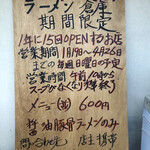 ラーメン倉庫
期間限定
1年に15日OPENするお店
営業期間 1月19日〜4月26日
までの毎週日曜日の予定
営業時間 午前10時から
スープがなくなり次第終了
メニュー(並) 600円
豚骨ラーメンのみ
店主